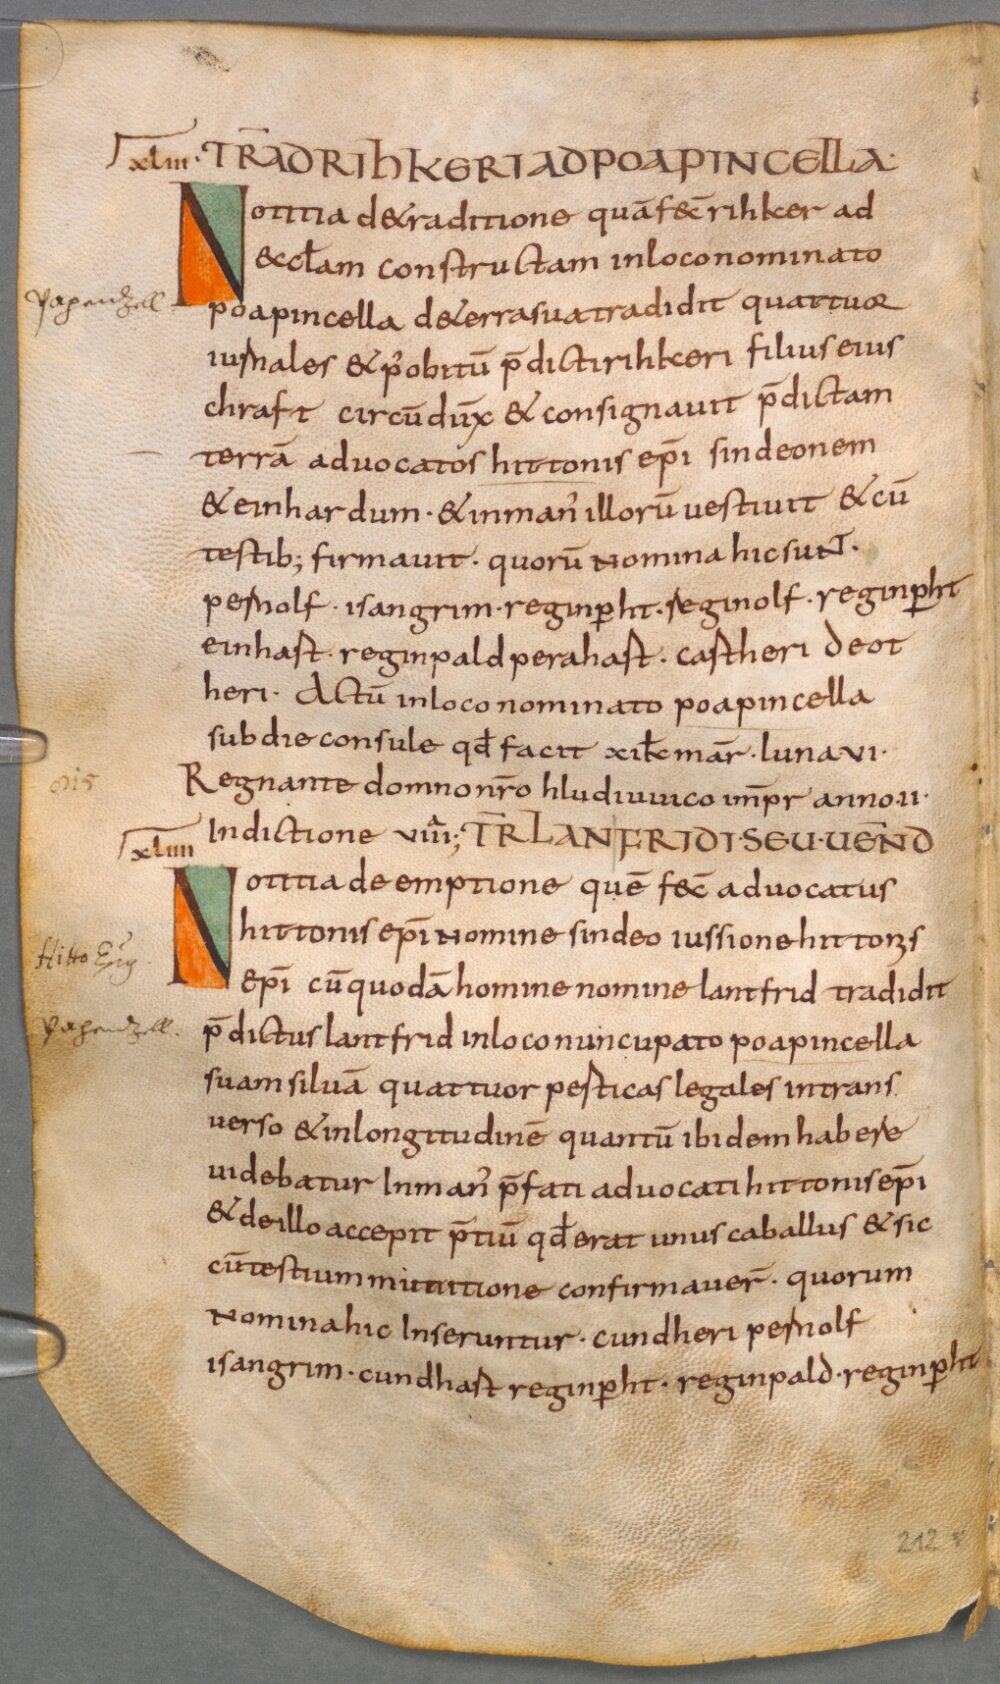 xliii· TR̄AD RIHKERI AD POAPINCELLA·
Notitia de &raditione quā fec̄ rihker ad
&ccl̄am constructam in loco nominato
papenzell
poapincella de &erra sua tradidit quattuor
iurnales & p̓ obitū p̄dicti rihkeri filius eius
chraft circūdūx & consignauit p̄dictam
terrā aduocatos hittonis ep̄i sindeonem
& einhardum · & in man̓ illorū uestiuit & cū
testib; firmauit · quorū nomina hic sunt ·
pernolf · isangrim · reginp̱ht · reginolf · reginp̱ht
einhast · reginpald perahast · castheri deot
heri · Actū in loco nominato poapincella
sub die consule qd̄ facit xi kl̄ mar̄ · luna vi ·
815
Regnante domno nr̄o hludiuuico imp̄r anno ii ·
Indictione viiii; TR̄ LANFRIDI · SEU · UEN̄D
xliiii
Notitia de emptione quē fec̄ aduocatus
hittonis ep̄i nomine sindeo iussione hittonis
Hitto Epg
ep̄i cū quodā homine nomine lantfrid tradidit
papenzell.
p̄dictus lantfrid in loco nuncupato poapincella
suam siluā quattuor perticas legales in trans
uerso & in longitudinē quantū ibidem habere
uidebatur In man̓ p̄fati aduocati hittonis ep̄i
& de illo accepit p̄tiū qd̄ erat unus caballus & sic
cū testium mitittione confirmauer̄ · quorum
nomina hic Inseruntur · cundheri pernolf
isangrim · cundhast reginp̱ht · reginpald · reginp̱ht
212 v